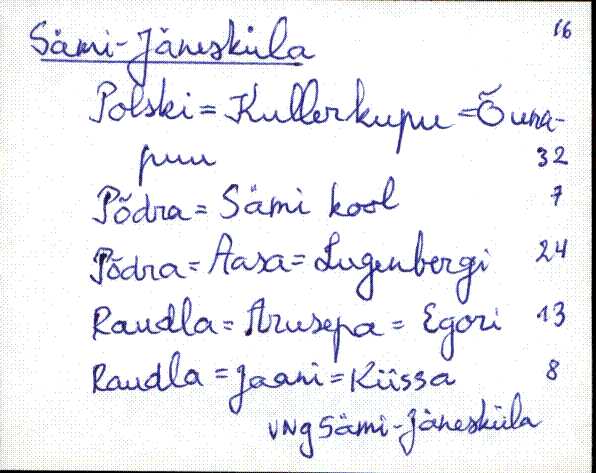 Sämi-Jäneskŭla 16
Polski = Kullerkupu = Õuna-
puu 32
Põdra = Sämi kool 7
Põdra = Aasa = Lugenbergi 24
Raudla = Arusepa = Egori 13
Raudla = Jaani = Kiissa 8
VNg Sämi-Jäneskŭla